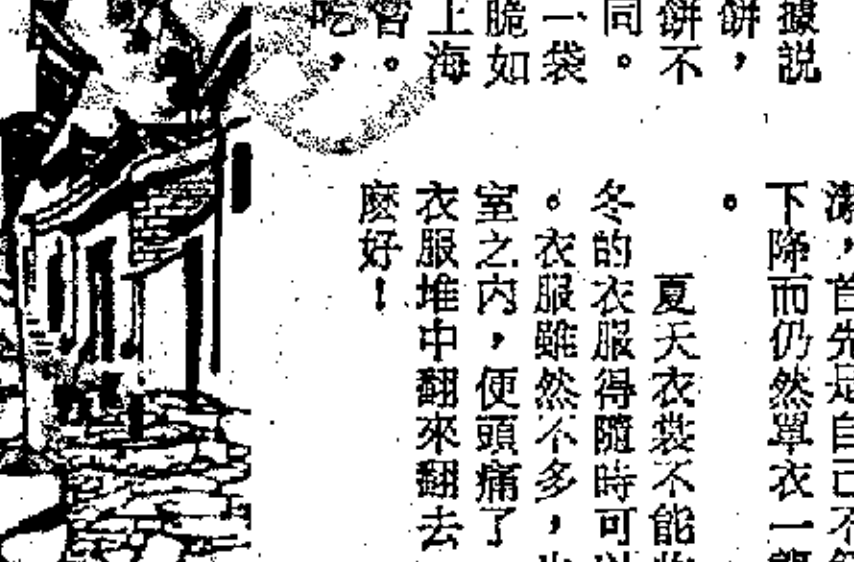 據説
餅，
餅不
同。
一袋
脆如
上海
。
吃，
，首先是自己不
下降而仍然單衣一
。
夏天衣裳不能
冬的衣服得隨時可以
。衣服雖然不多，
室之内，便頭痛了
衣服堆中翻來翻去
麽好！